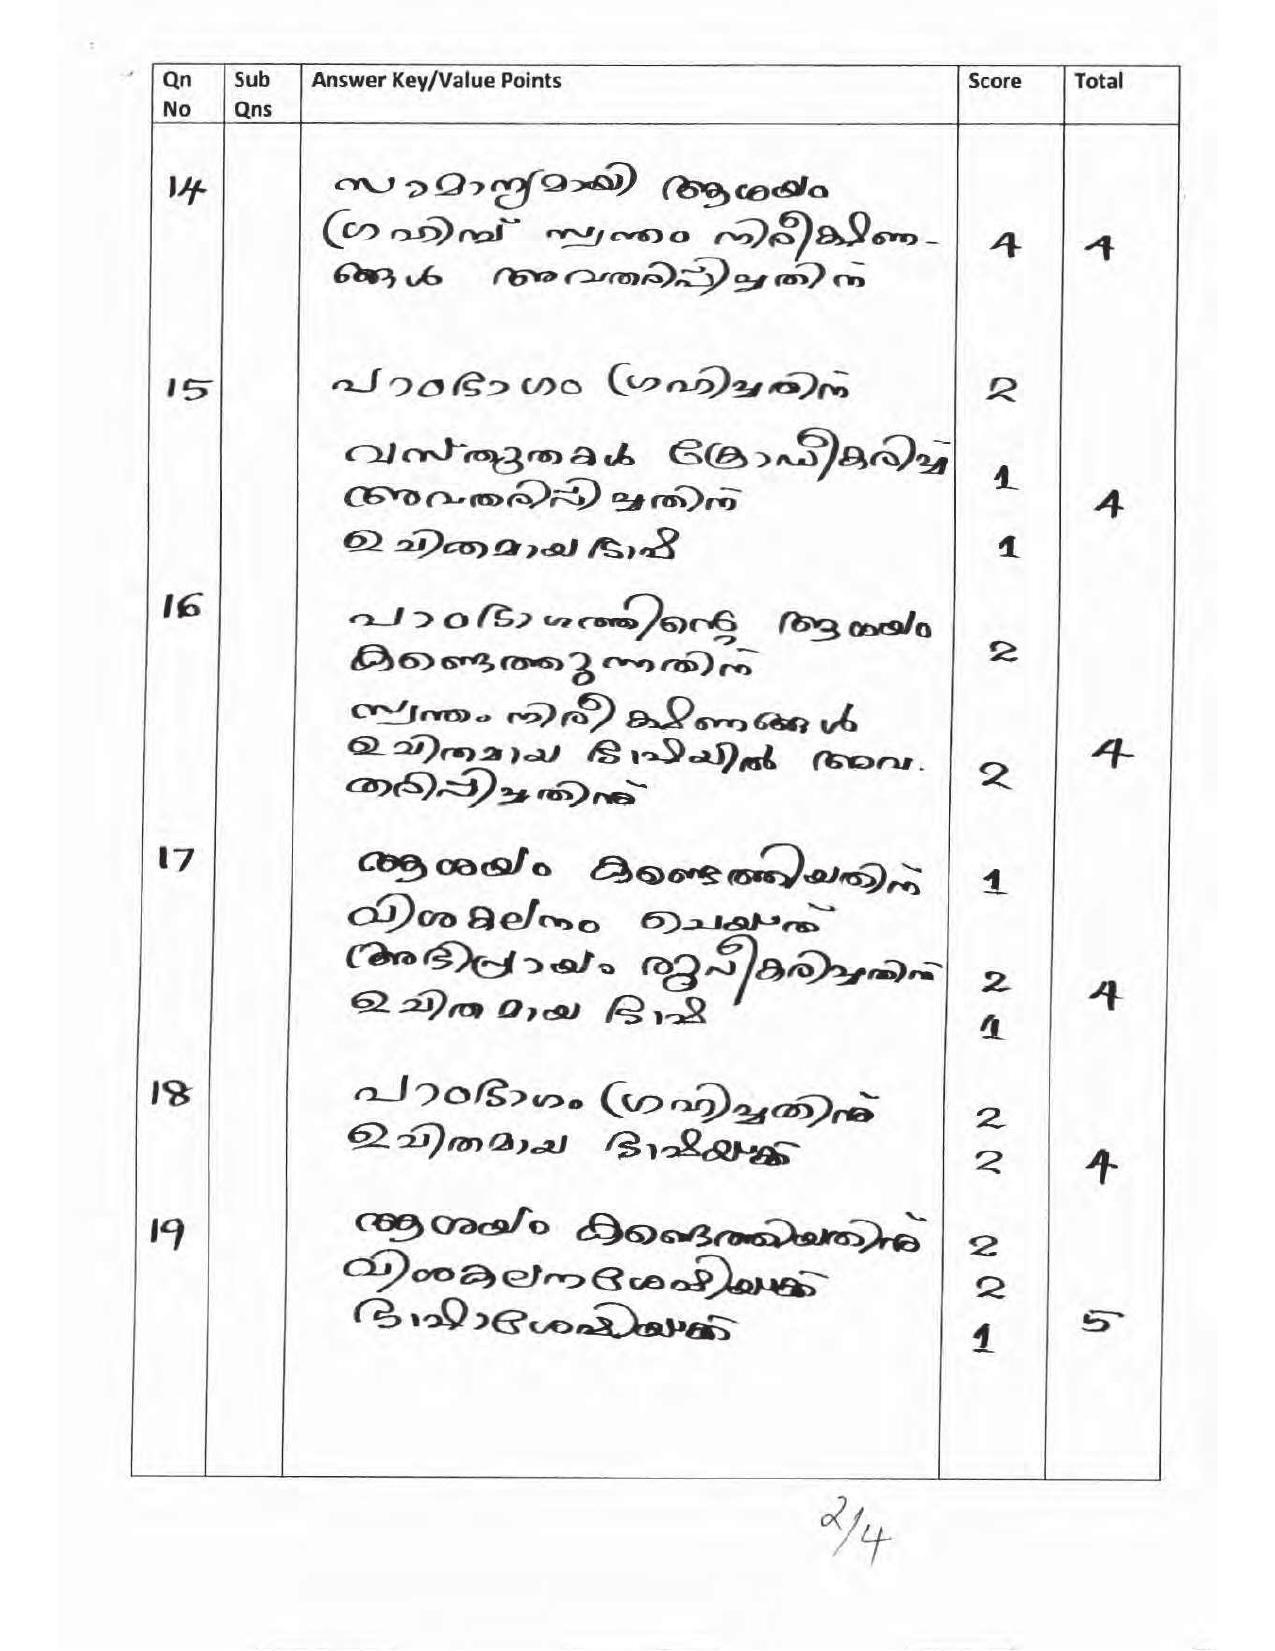 Qn Sub Answer Key/Value Points Score Total
No Qns
14 സാമാന്യമായി ആശയം
ഗ്രഹിച്ച് സ്വന്തം നിരീക്ഷണ- 4 4
ങ്ങൾ അവതരിപ്പിച്ചതിന്
15 പാഠഭാഗം ഗ്രഹിച്ചതിന് 2
വസ്തുതകൾ ക്രോഡീകരിച്ച് 1
അവതരിപ്പിച്ചതിന് 4
ഉചിതമായ ഭാഷ 1
16 പാഠഭാഗത്തിന്റെ ആശയം 2
കണ്ടെത്തുന്നതിന്
സ്വന്തം നിരീക്ഷണങ്ങൾ
ഉചിതമായ ഭാഷയിൽ അവ- 2 4
തരിപ്പിച്ചതിന്
17 ആശയം കണ്ടെത്തിയതിന് 1
വിശകലനം ചെയ്ത്
അഭിപ്രായം രൂപീകരിച്ചതിന് 2 4
ഉചിതമായ ഭാഷ 1
18 പാഠഭാഗം ഗ്രഹിച്ചതിന് 2
ഉചിതമായ ഭാഷയ്ക്ക് 2 4
19 ആശയം കണ്ടെത്തിയതിന് 2
വിശകലനശേഷിയ്ക്ക് 2
ഭാഷാശേഷിയ്ക്ക് 1 5
2/4